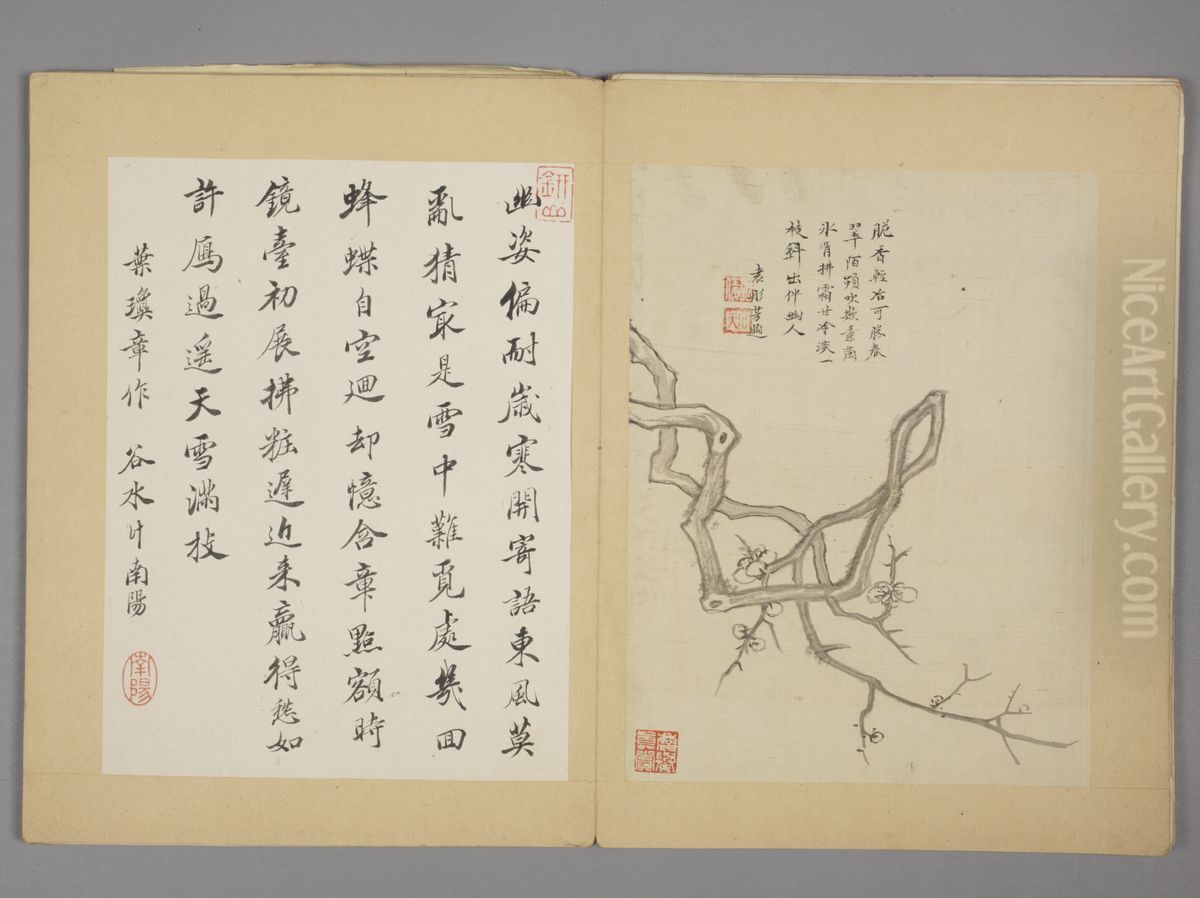 脆香輕冶可勝春
翠陌頻吹素
氷骨拂霜甘冷淡一
枝斜出伴幽人
袁彤芳題
幽姿偏耐歲寒開寄語東風莫
亂猜㝡是雪中難覓處幾回
蜂蝶自空迴却憶含章點額時
鏡臺初展拂粧遲近来贏得愁如
許鴈過遥天雪滿枝
葉瓊章作 谷水 南陽
南陽
NiceArtGallery.com